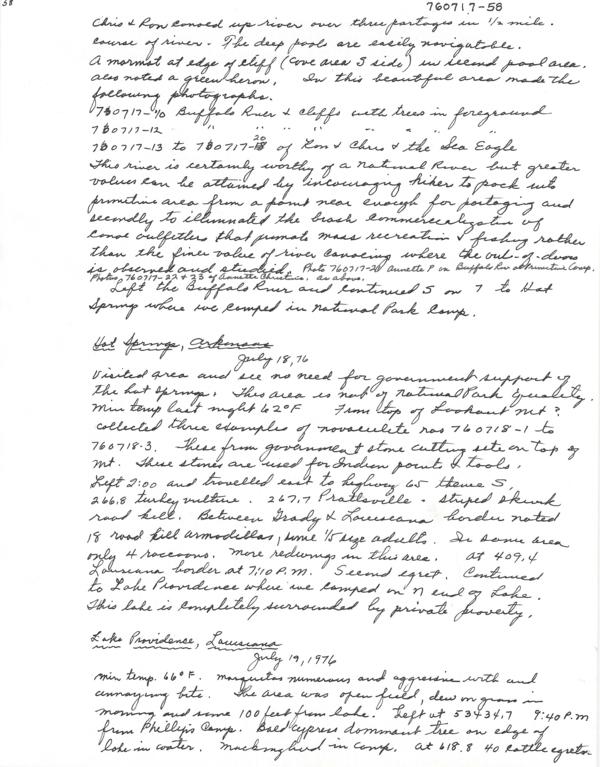 58
760717-58
Chris & Ron canoed up river over three portages in 1/2 mile.
course of river. The deep pools are easily navigatable.
A marmat at edge of cliff (cove area S side) in second pool area.
also noted a green heron. In this beautiful area made the
following photographs.
760717-10 Buffalo River & cliffs with trees in foreground
760717-12 " " " " " " "
760717-13 to 760717-20 of Ron & Chris & the Sea Eagle
This river is certainly worthy of a National River but greater
values can be attained by incouraging hiker to pack into
primitive area from a point near enough for portaging and
secondly to illumnated the brash commercealization of
canoe outfitters that promote mass recreation & fishing rather
than the finer value of river canoeing where the out-of-doors
is observed and studied. Photo 760717-21 Annette P on Buffalo Riv at Primitive Camp.
Photos 760717-22 & 23 of Annette Christine. as above.
Left the Buffalo River and continued S on 7 to Hot
Springs where we camped in National Park Camp.
Hot Springs, Arkansas
July 18, 76
Visited area and see no need for government support of
the hot springs. This area is not of National Park quality.
Min temp last night 62°F From top of Lookout Mt ?
collected three examples of novaculite nos 760718-1 to
760718-3. These from government stone cutting site on top of
Mt. These stones are used for Indian points & tools.
Left 2:00 and travelled east to highway 65 thence S,
266.8 turkey vulture. 267.7 Prattsville - striped skunk
road kill. Between Grady & Louisiana border noted
18 road kill armodillos, some 1/5 size adults. In same area
only 4 raccoons. More redwings in this area. At 409.4
Louisiana border at 7:10 P.M. Second egret. Continued
to Lake Providence where we camped on N end of Lake.
This lake is completely surrounded by private proverty.
Lake Providence, Louisiana
July 19, 1976
min temp. 66°F. mosquitas numerous and aggressive with and
annoying bite. The area was open field, dew on grass in
morning and some 100 feet from lake. Left at 53434.7 9:40 P.M
from Phillips Camp. Bald cypress dominant tree on edge of
lake in water. Mockingbird in camp. At 618.8 40 cattle egrets